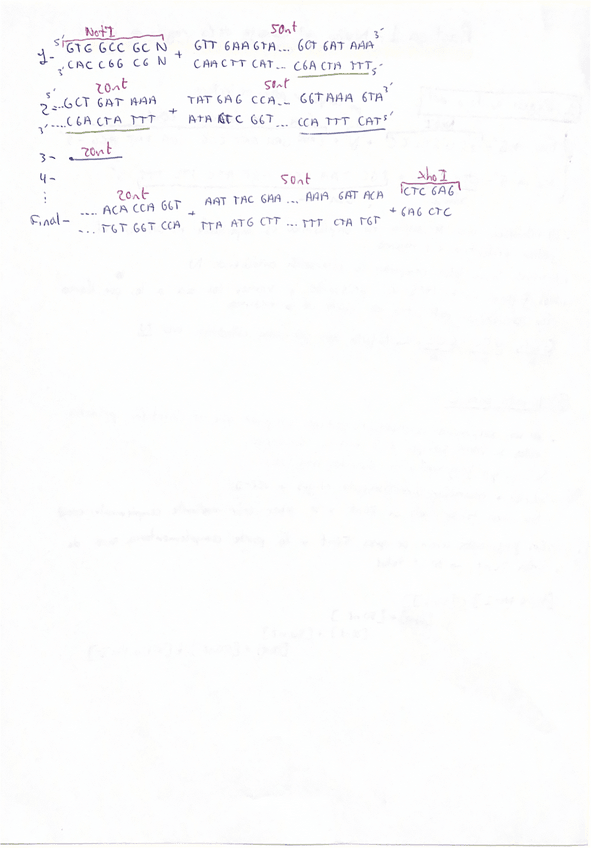 NotI 50nt
1- 5' GTG GCC GC N + GTT GAA GTA... GCT GAT AAA 3'
3' CAC CGG CG N CAA CTT CAT... CGA CTA TTT 5'
20nt 50nt
2- 5' ...GCT GAT AAA + TAT GAG CCA... GGT AAA GTA 3'
3' ....CGA CTA TTT ATA CTC GGT... CCA TTT CAT 5'
3- 20nt
4-
⋮ 20nt 50nt XhoI
Final- .... ACA CCA GGT + AAT TAC GAA ... AAA GAT ACA + CTC GAG
... TGT GGT CCA TTA ATG CTT ... TTT CTA TGT GAG CTC